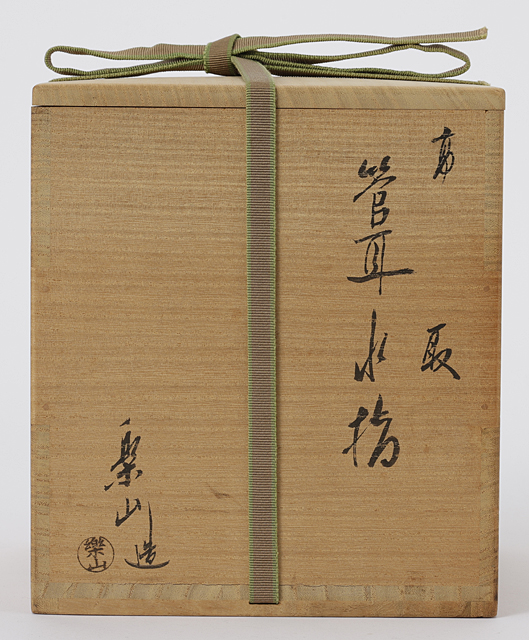 高取
管耳水指
楽山造
樂山